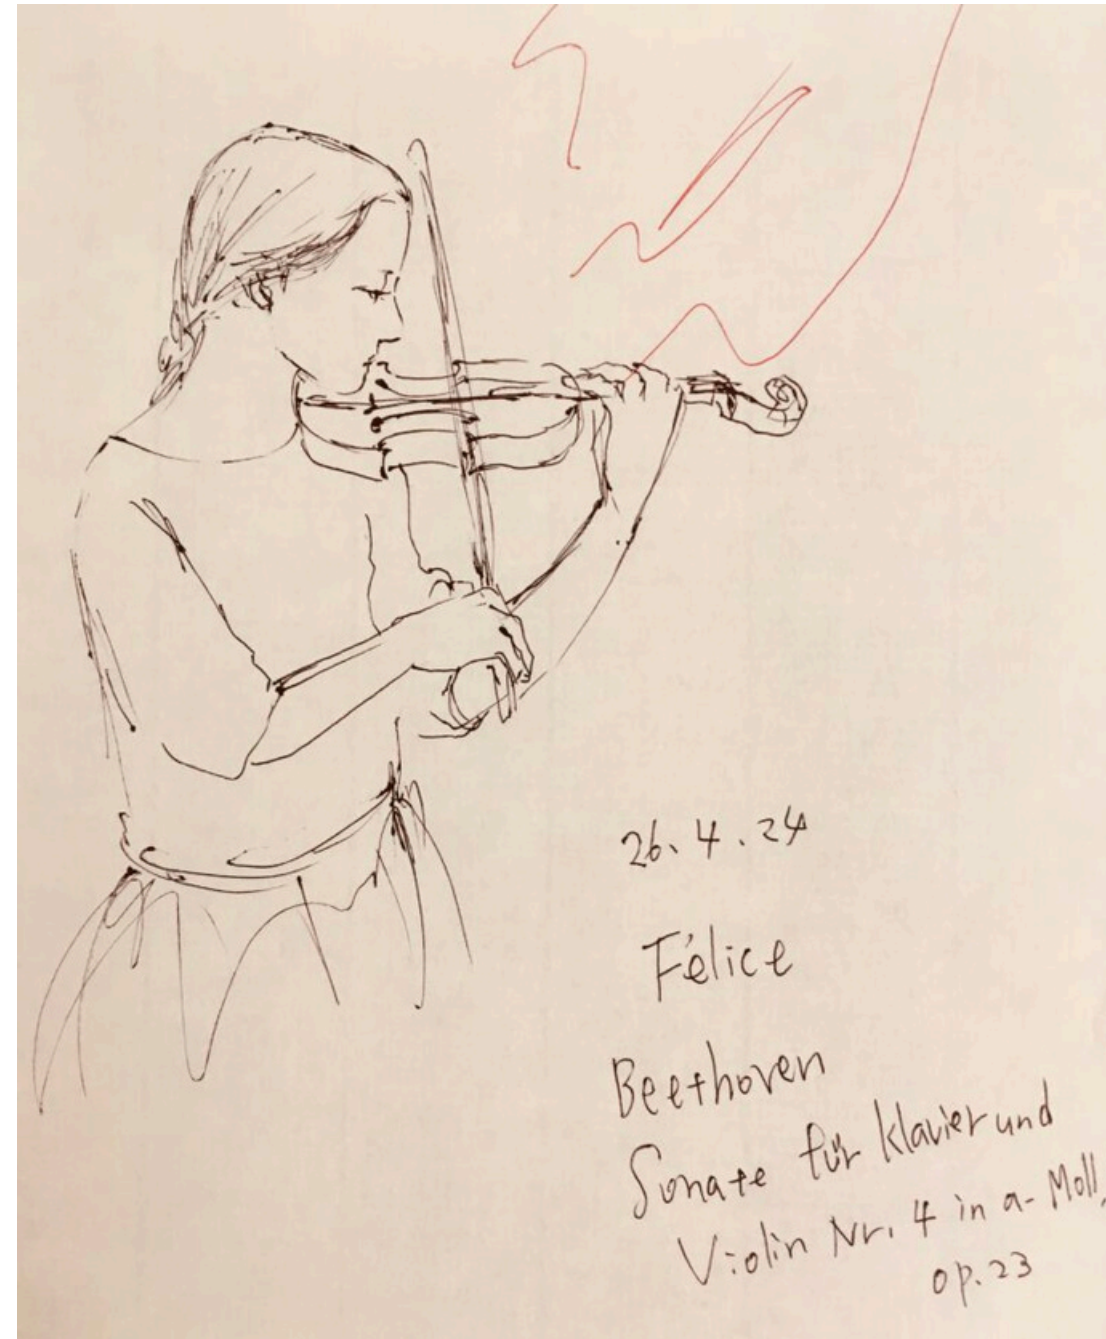 26.4.24
Félice
Beethoven
Sonate für Klavier und
Violin Nr. 4 in a-Moll,
op.23